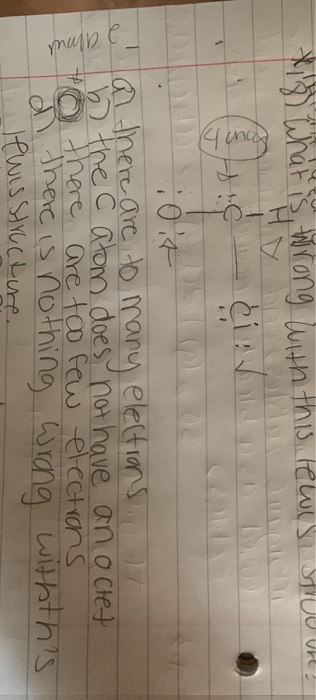 *18) What is wrong with this lewis structure?
H ▽
:C — Cl: √
:O:
a) there are to many electrons
b) the C atom does not have an octet
there are too few electrons
d) there is nothing wrong with this
lewis structure.